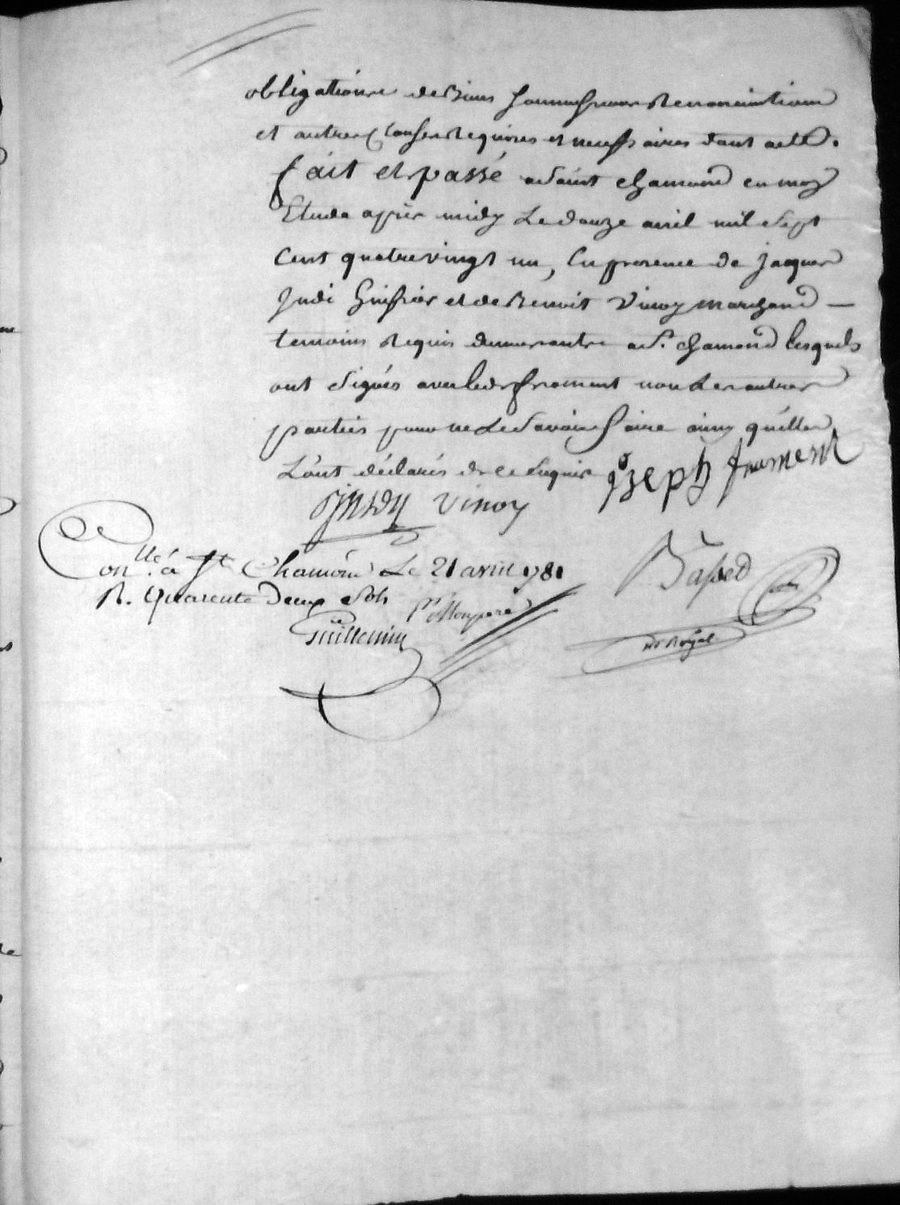 obligations de Biens soumissions Renonciations
et autres Clauses Requises et necessaires dont acte.
fait et passé a Saint chamond en mon
Etude après midy Le douze avril mil Sept
Cent quatrevingt un, En presence de jacques
Judi et de Benoit Vinoy marchand
temoins Requis demeurants a St. chamond lesquels
ont Signés avec led. froment non Les autres
parties pour ne Le Savoir faire ainsy qu'elles
L'ont déclarés de ce Enquis
joseph froment
Vinoy
Conllé. à St Chamond Le 21 avril 1781
R. Quarente Deux Sols
Guillemin
no Royal